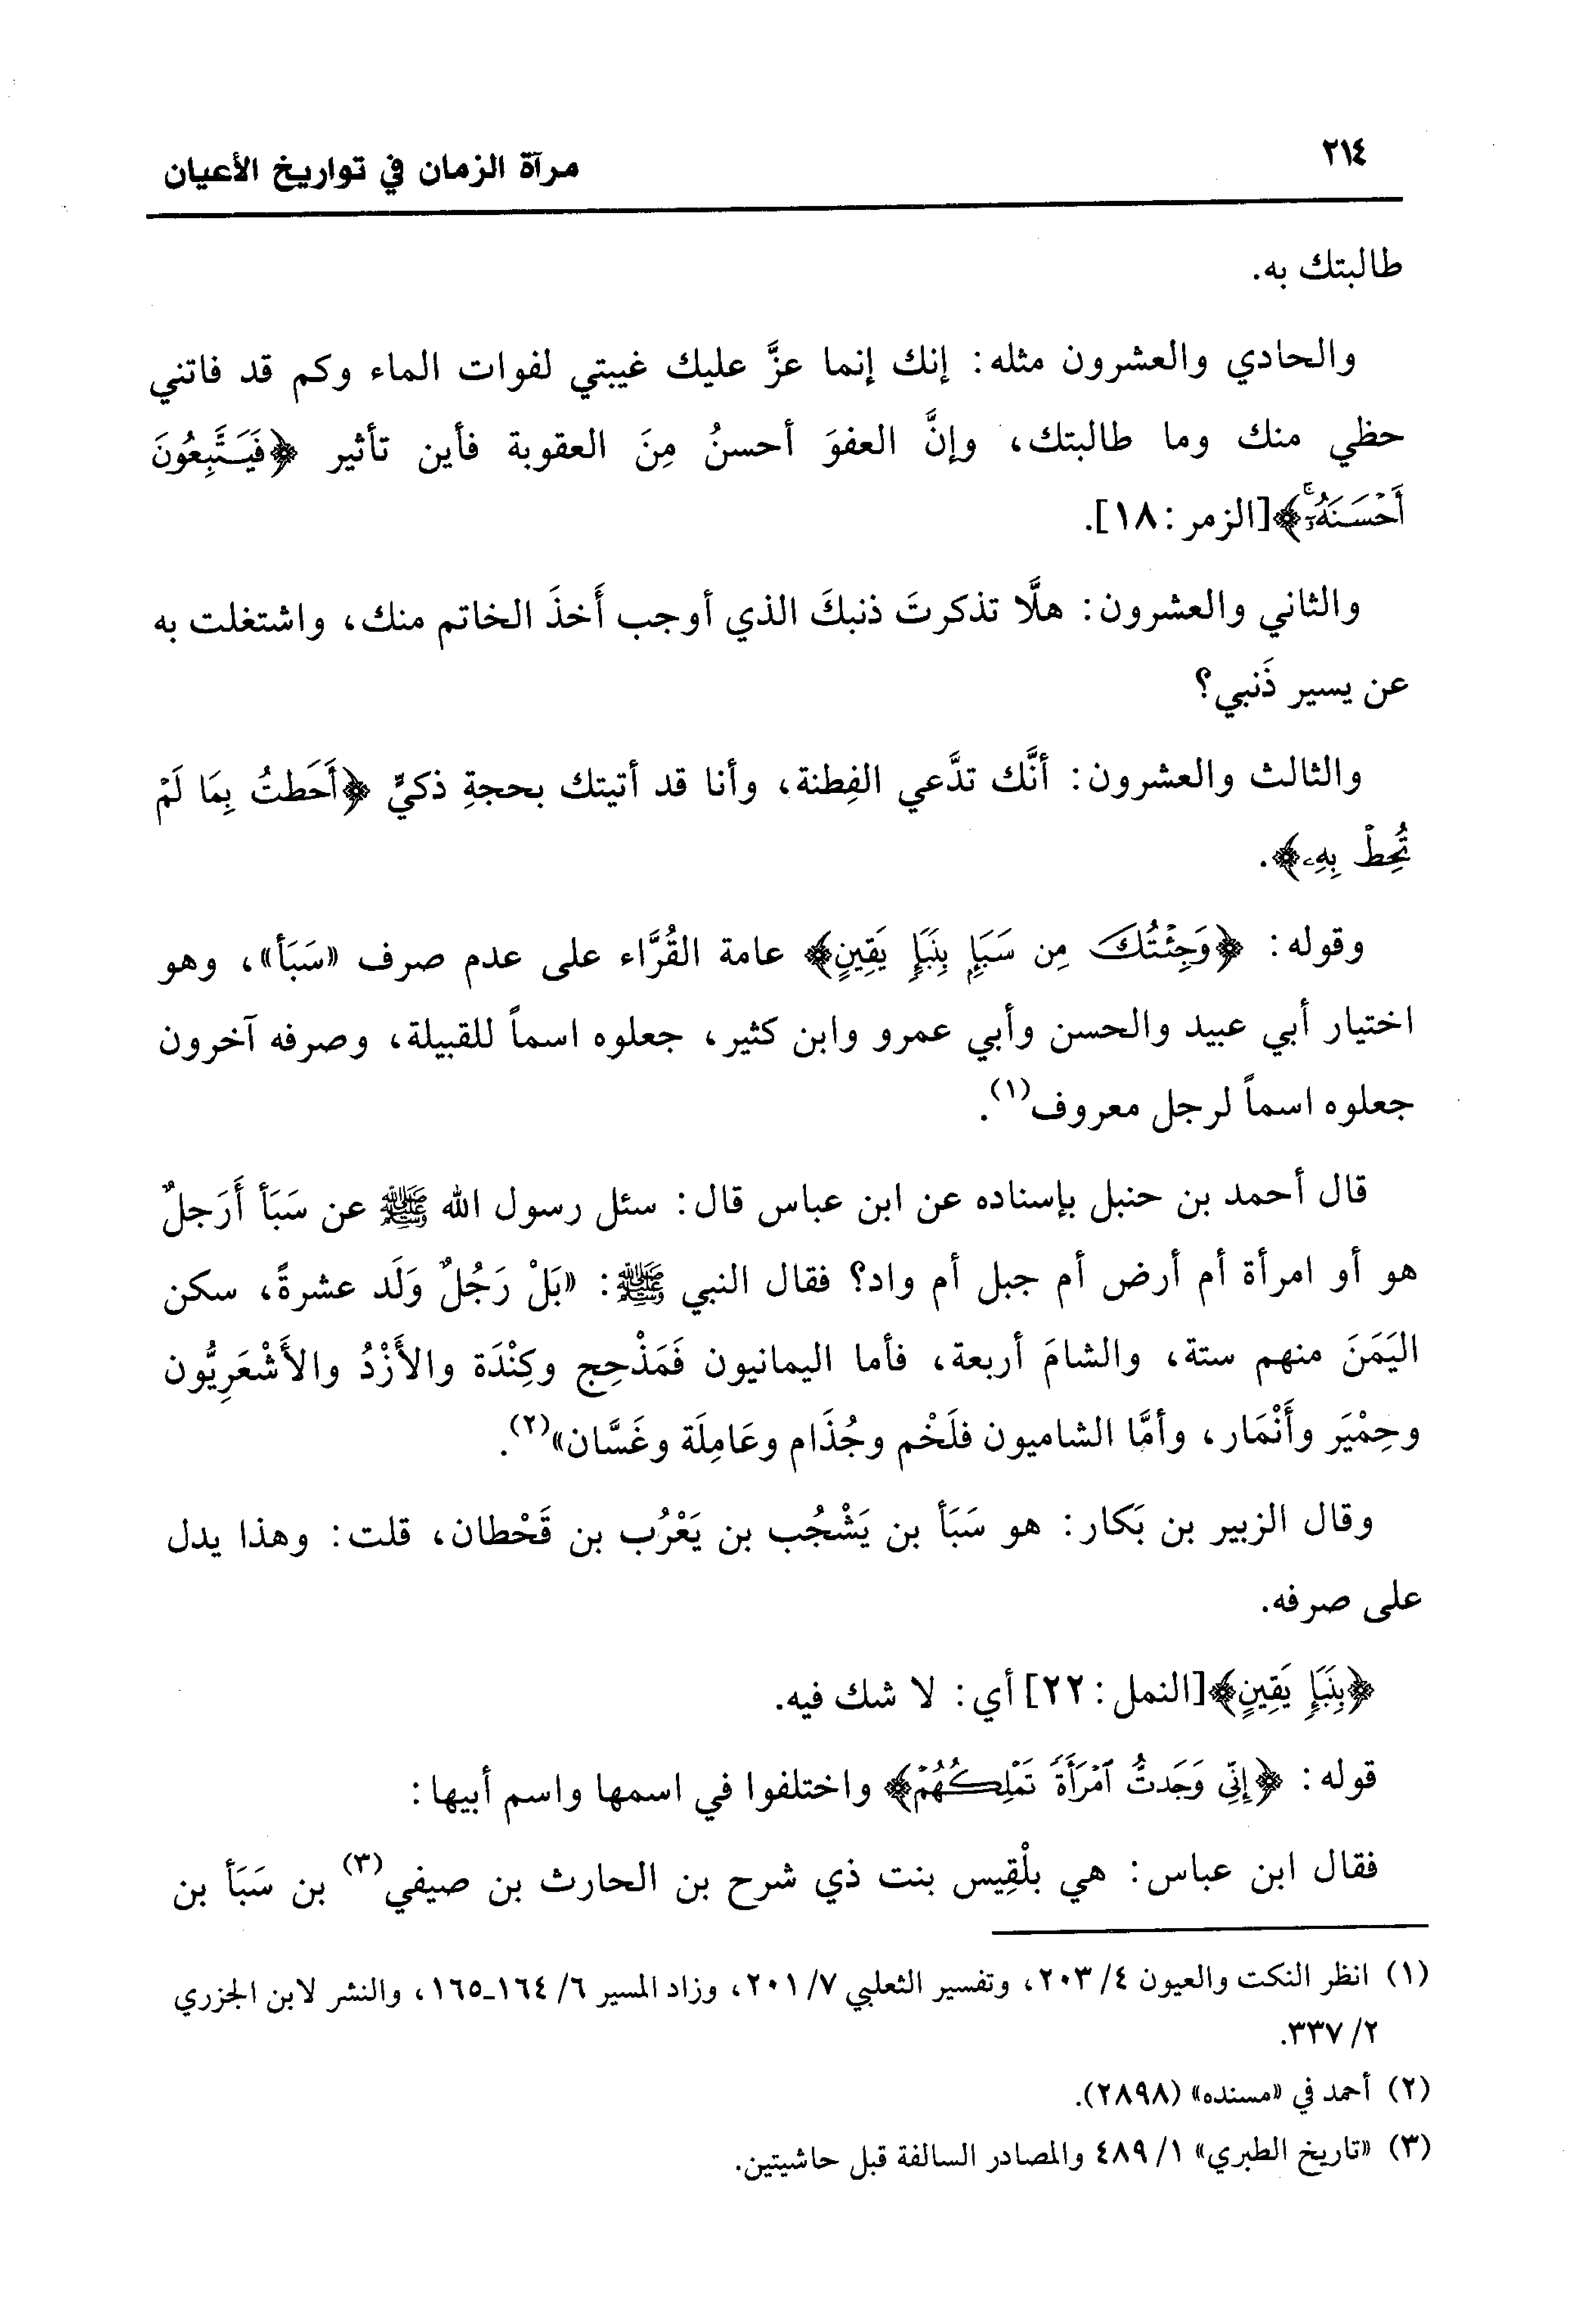 ٢١٤
مرآة الزمان في تواريخ الأعيان
طالبتك به.
والحادي والعشرون مثله: إنك إنما عزَّ عليك غيبتي لفوات الماء وكم قد فاتني
حظي منك وما طالبتك، وإنَّ العفوَ أحسنُ مِنَ العقوبة فأين تأثير ﴿فَيَتَّبِعُونَ
أَحْسَنَهُۥٓۚ﴾[الزمر: ١٨].
والثاني والعشرون: هلَّا تذكرتَ ذنبكَ الذي أوجب أَخذَ الخاتم منك، واشتغلت به
عن يسير ذَنبي؟
والثالث والعشرون: أنَّك تدَّعي الفِطنة، وأنا قد أتيتك بحجةِ ذكيٍّ ﴿أَحَطتُ بِمَا لَمْ
تُحِطْ بِهِۦ﴾.
وقوله: ﴿وَجِئْتُكَ مِن سَبَإٍ بِنَبَإٍ يَقِينٍ﴾ عامة القُرَّاء على عدم صرف «سَبَأ»، وهو
اختيار أبي عبيد والحسن وأبي عمرو وابن كثير، جعلوه اسماً للقبيلة، وصرفه آخرون
جعلوه اسماً لرجل معروف(١).
قال أحمد بن حنبل بإسناده عن ابن عباس قال: سئل رسول الله ﷺ عن سَبَأ أَرَجلٌ
هو أو امرأة أم أرض أم جبل أم واد؟ فقال النبي ﷺ: «بَلْ رَجُلٌ وَلَد عشرةً، سكن
اليَمَنَ منهم ستة، والشامَ أربعة، فأما اليمانيون فَمَذْحِج وكِنْدَة والأَزْدُ والأَشْعَرِيُّون
وحِمْيَر وأَنْمَار، وأمَّا الشاميون فلَخْم وجُذَام وعَامِلَة وغَسَّان»(٢).
وقال الزبير بن بَكار: هو سَبَأ بن يَشْجُب بن يَعْرُب بن قَحْطان، قلت: وهذا يدل
على صرفه.
﴿بِنَبَإٍ يَقِينٍ﴾[النمل: ٢٢] أي: لا شك فيه.
قوله: ﴿إِنِّي وَجَدتُّ ٱمْرَأَةً تَمْلِكُهُمْ﴾ واختلفوا في اسمها واسم أبيها:
فقال ابن عباس: هي بلْقِيس بنت ذي شرح بن الحارث بن صيفي(٣) بن سَبَأ بن
(١) انظر النكت والعيون ٤/ ٢٠٣، وتفسير الثعلبي ٧/ ٢٠١، وزاد المسير ٦/ ١٦٤ـ١٦٥، والنشر لابن الجزري
٢/ ٣٣٧.
(٢) أحمد في «مسنده» (٢٨٩٨).
(٣) «تاريخ الطبري» ١/ ٤٨٩ والمصادر السالفة قبل حاشيتين.